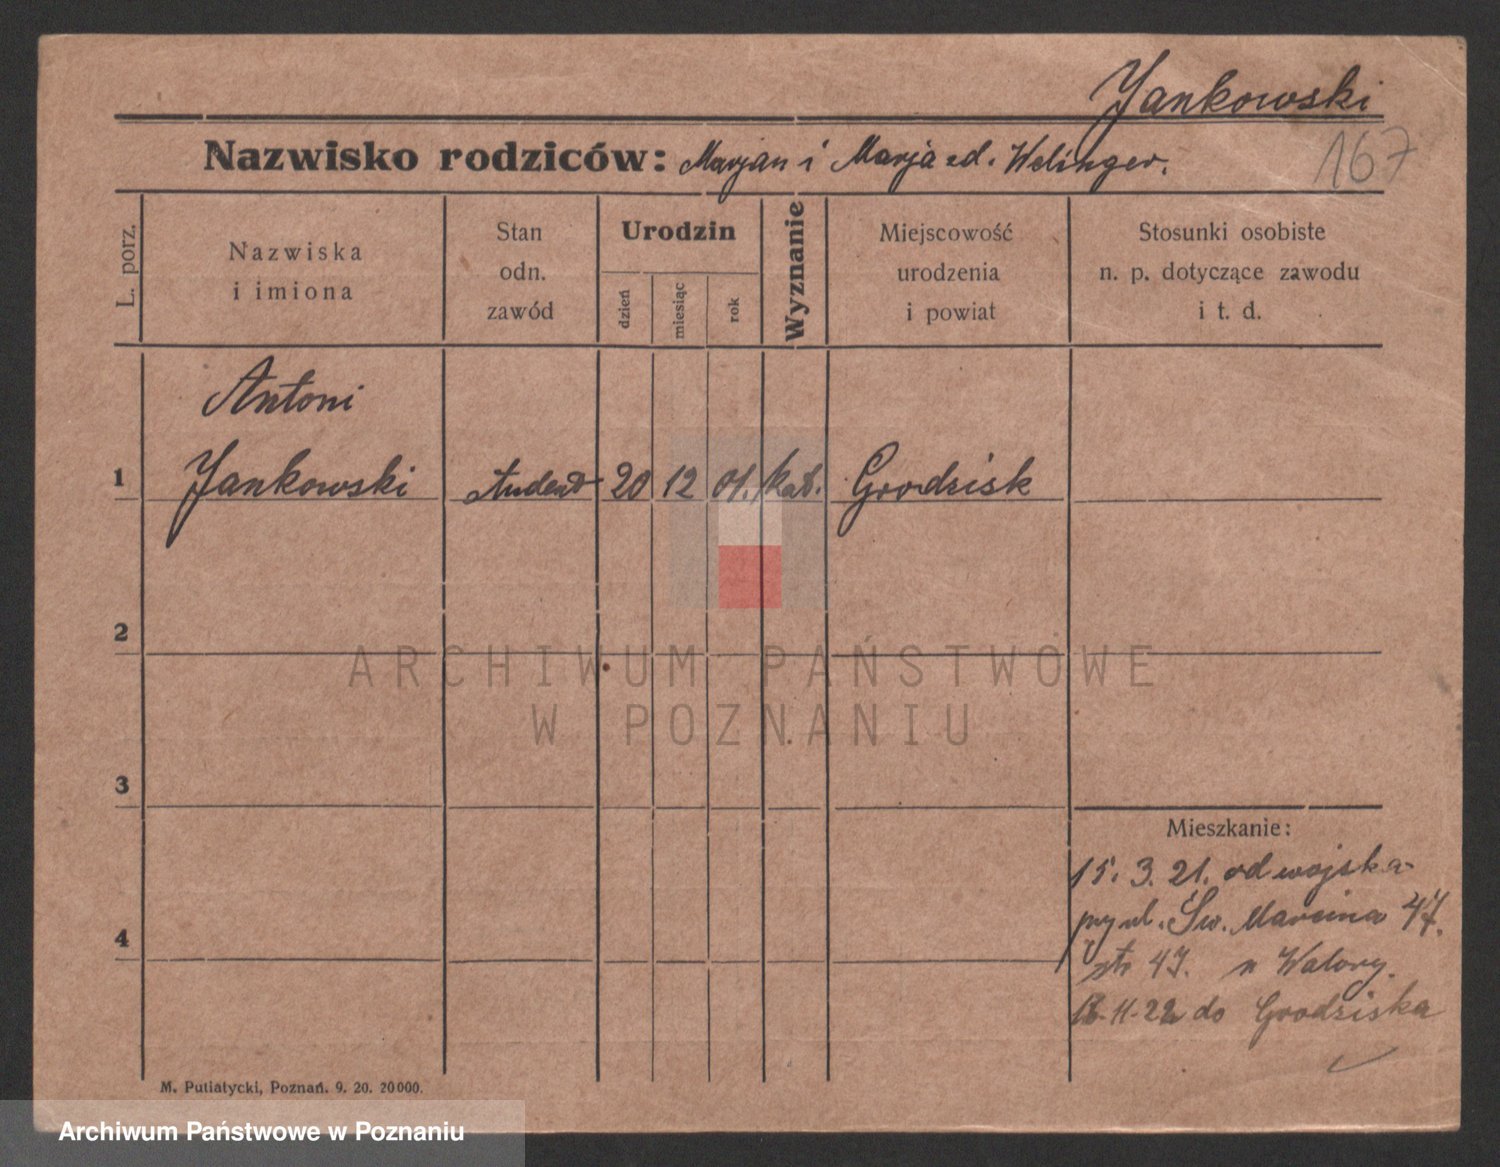 Jankowski
167
Nazwisko rodziców: Marjan i Marja zd. Welinger.
L. porz.
Nazwiska
i imiona
Stan
odn.
zawód
Urodzin
dzień
miesiąc
rok
Wyznanie
Miejscowość
urodzenia
i powiat
Stosunki osobiste
n. p. dotyczące zawodu
i t. d.
Antoni
1 Jankowski student 20 12 01. kat. Grodzisk
2
ARCHIWUM PAŃSTWOWE
W POZNANIU
3
Mieszkanie:
15. 3. 21. od wojska
przy ul. Św. Marcina 47.
4
47. u Walory.
11-22 do Grodziska
M. Putiatycki, Poznań. 9. 20. 20000.
Archiwum Państwowe w Poznaniu